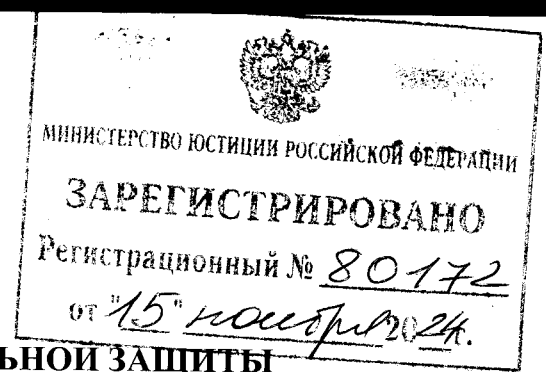 МИНИСТЕРСТВО ЮСТИЦИИ РОССИЙСКОЙ ФЕДЕРАЦИИ
ЗАРЕГИСТРИРОВАНО
Регистрационный № 80172
от "15" ноября 2024г.
ЬНОЙ ЗАЩИТЫ